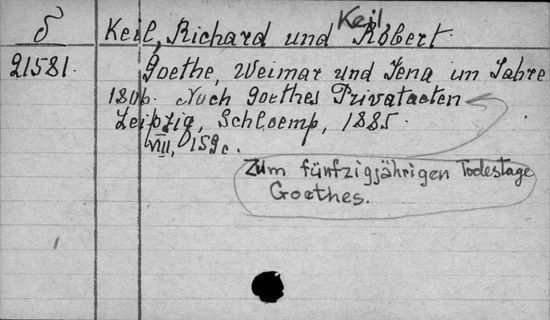 δ Keil, Richard und Keil, Robert.
21581. Goethe, Weimar und Jena im Jahre
1806. Nach Goethes Privatacten
Leipzig, Schloemp, 1885.
VIII, 159 c.
Zum fünfzigjährigen Todestage
Goethes.